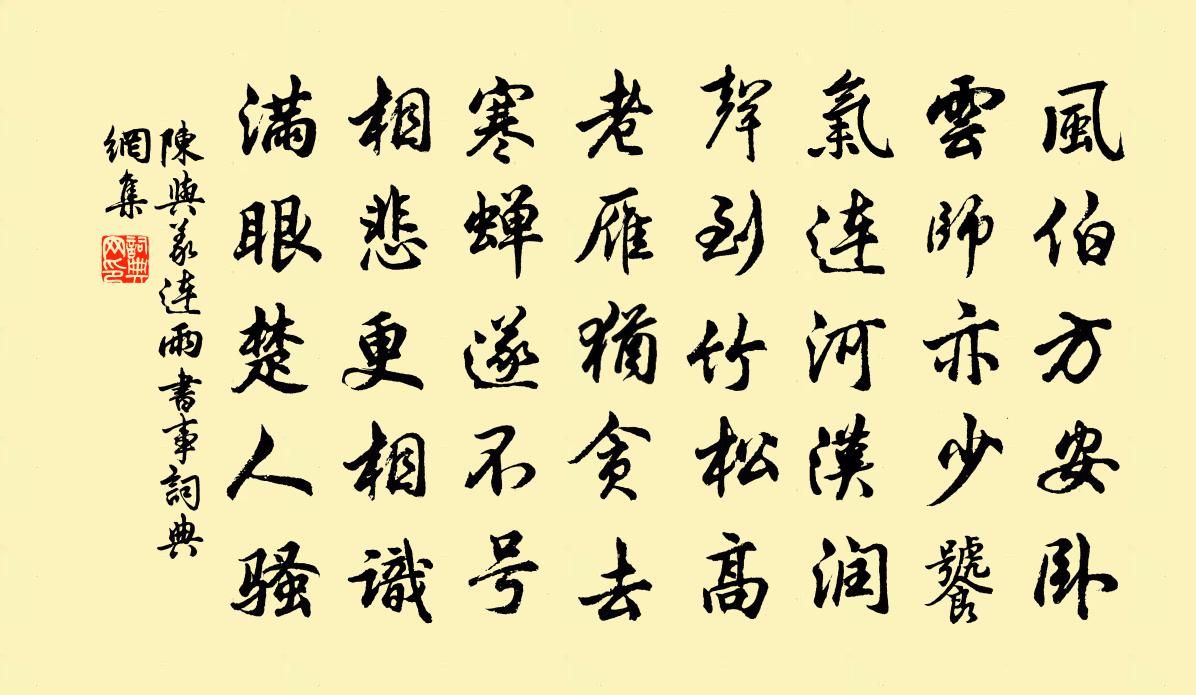 風伯方安卧
雲師亦少饕
氣連河漢润
聲到竹松高
老雁猶贪去
寒蝉遂不号
相悲更相識
满眼楚人骚
陳與義連雨書事詞典
網集
詞典
网印